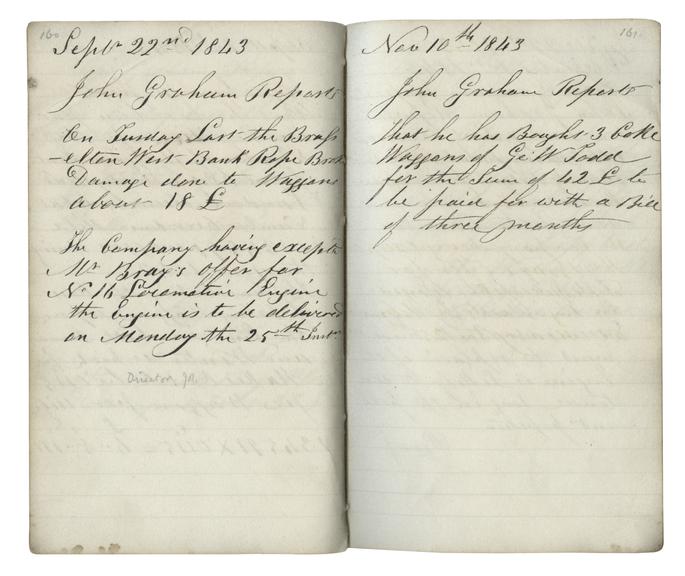 160
Septr 22nd 1843
John Graham Reports
On Tusday Last the Brafs
-elton West Bank Rope Brok
Damage done to Waggons
about 18 £
The Company having except
Mr Bray's Offer for
No 16 Locomotive Engine
the Engine is to be delivered
on Monday the 25th Inst
Director, JR.
161.
Nov 10th 1843
John Graham Reports
that he has Bought 3 Coke
Waggons of Ge W Todd
for the Sum of 42 £ to
be paid for with a Bill
of three months